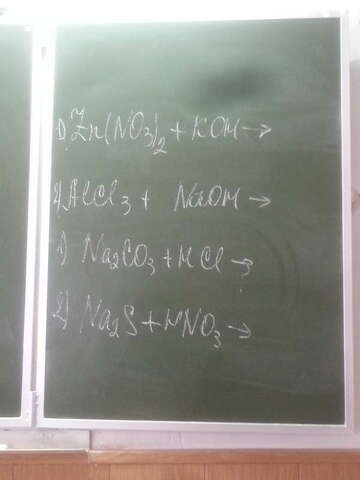 1) Zn(NO3)2 + KOH →
2) AlCl3 + NaOH →
1) Na2CO3 + HCl →
2) Na2S + HNO3 →